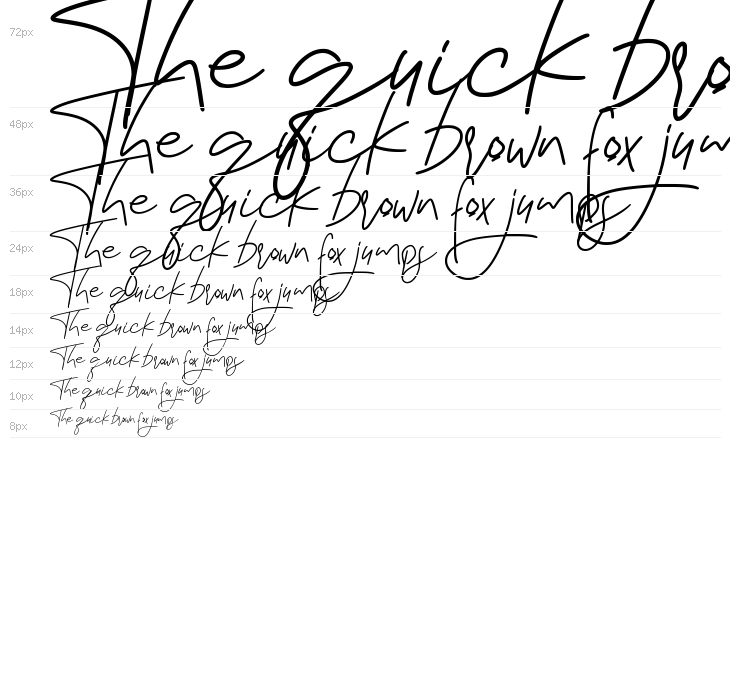 72px The quick bro
48px The quick brown fox jum
36px The quick brown fox jumps
24px The quick brown fox jumps
18px The quick brown fox jumps
14px The quick brown fox jumps
12px The quick brown fox jumps
10px The quick brown fox jumps
8px The quick brown fox jumps